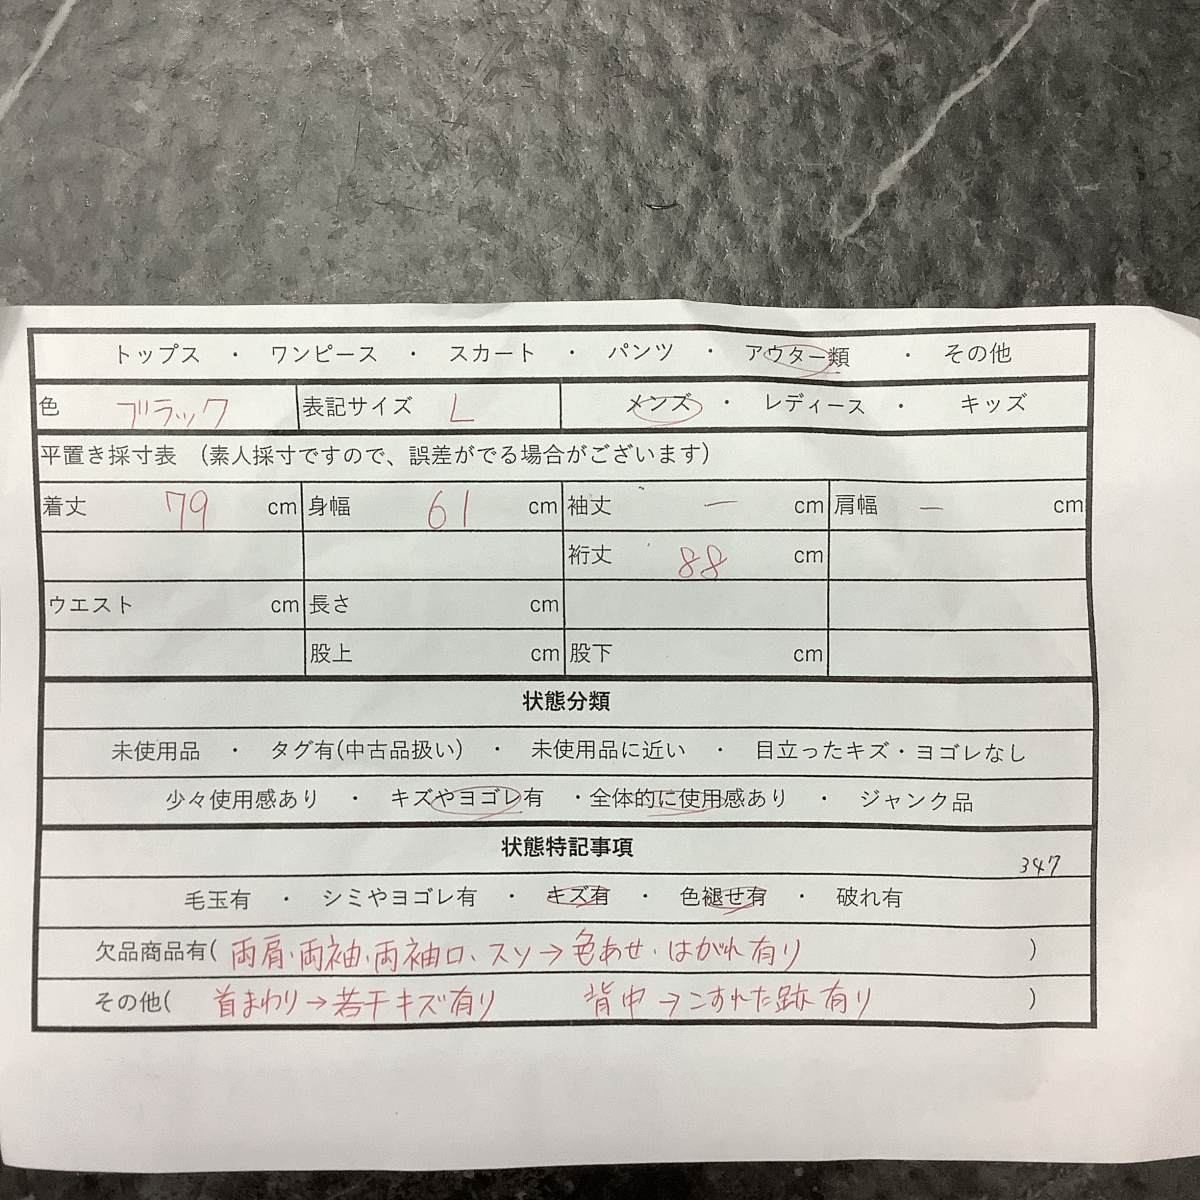 トップス ・ ワンピース ・ スカート ・ パンツ ・ アウター類 ・ その他
色 ブラック 表記サイズ L メンズ ・ レディース ・ キッズ
平置き採寸表 （素人採寸ですので、誤差がでる場合がございます）
着丈 79 cm 身幅 61 cm 袖丈 ー cm 肩幅 ー cm
裄丈 88 cm
ウエスト cm 長さ cm
股上 cm 股下 cm
状態分類
未使用品 ・ タグ有(中古品扱い) ・ 未使用品に近い ・ 目立ったキズ・ヨゴレなし
少々使用感あり ・ キズやヨゴレ有 ・全体的に使用感あり ・ ジャンク品
状態特記事項
347
毛玉有 ・ シミやヨゴレ有 ・ キズ有 ・ 色褪せ有 ・ 破れ有
欠品商品有( 両肩、両袖、両袖口、スソ→色あせ・はがれ有り )
その他( 首まわり→若干キズ有り 背中→こすれた跡有り )